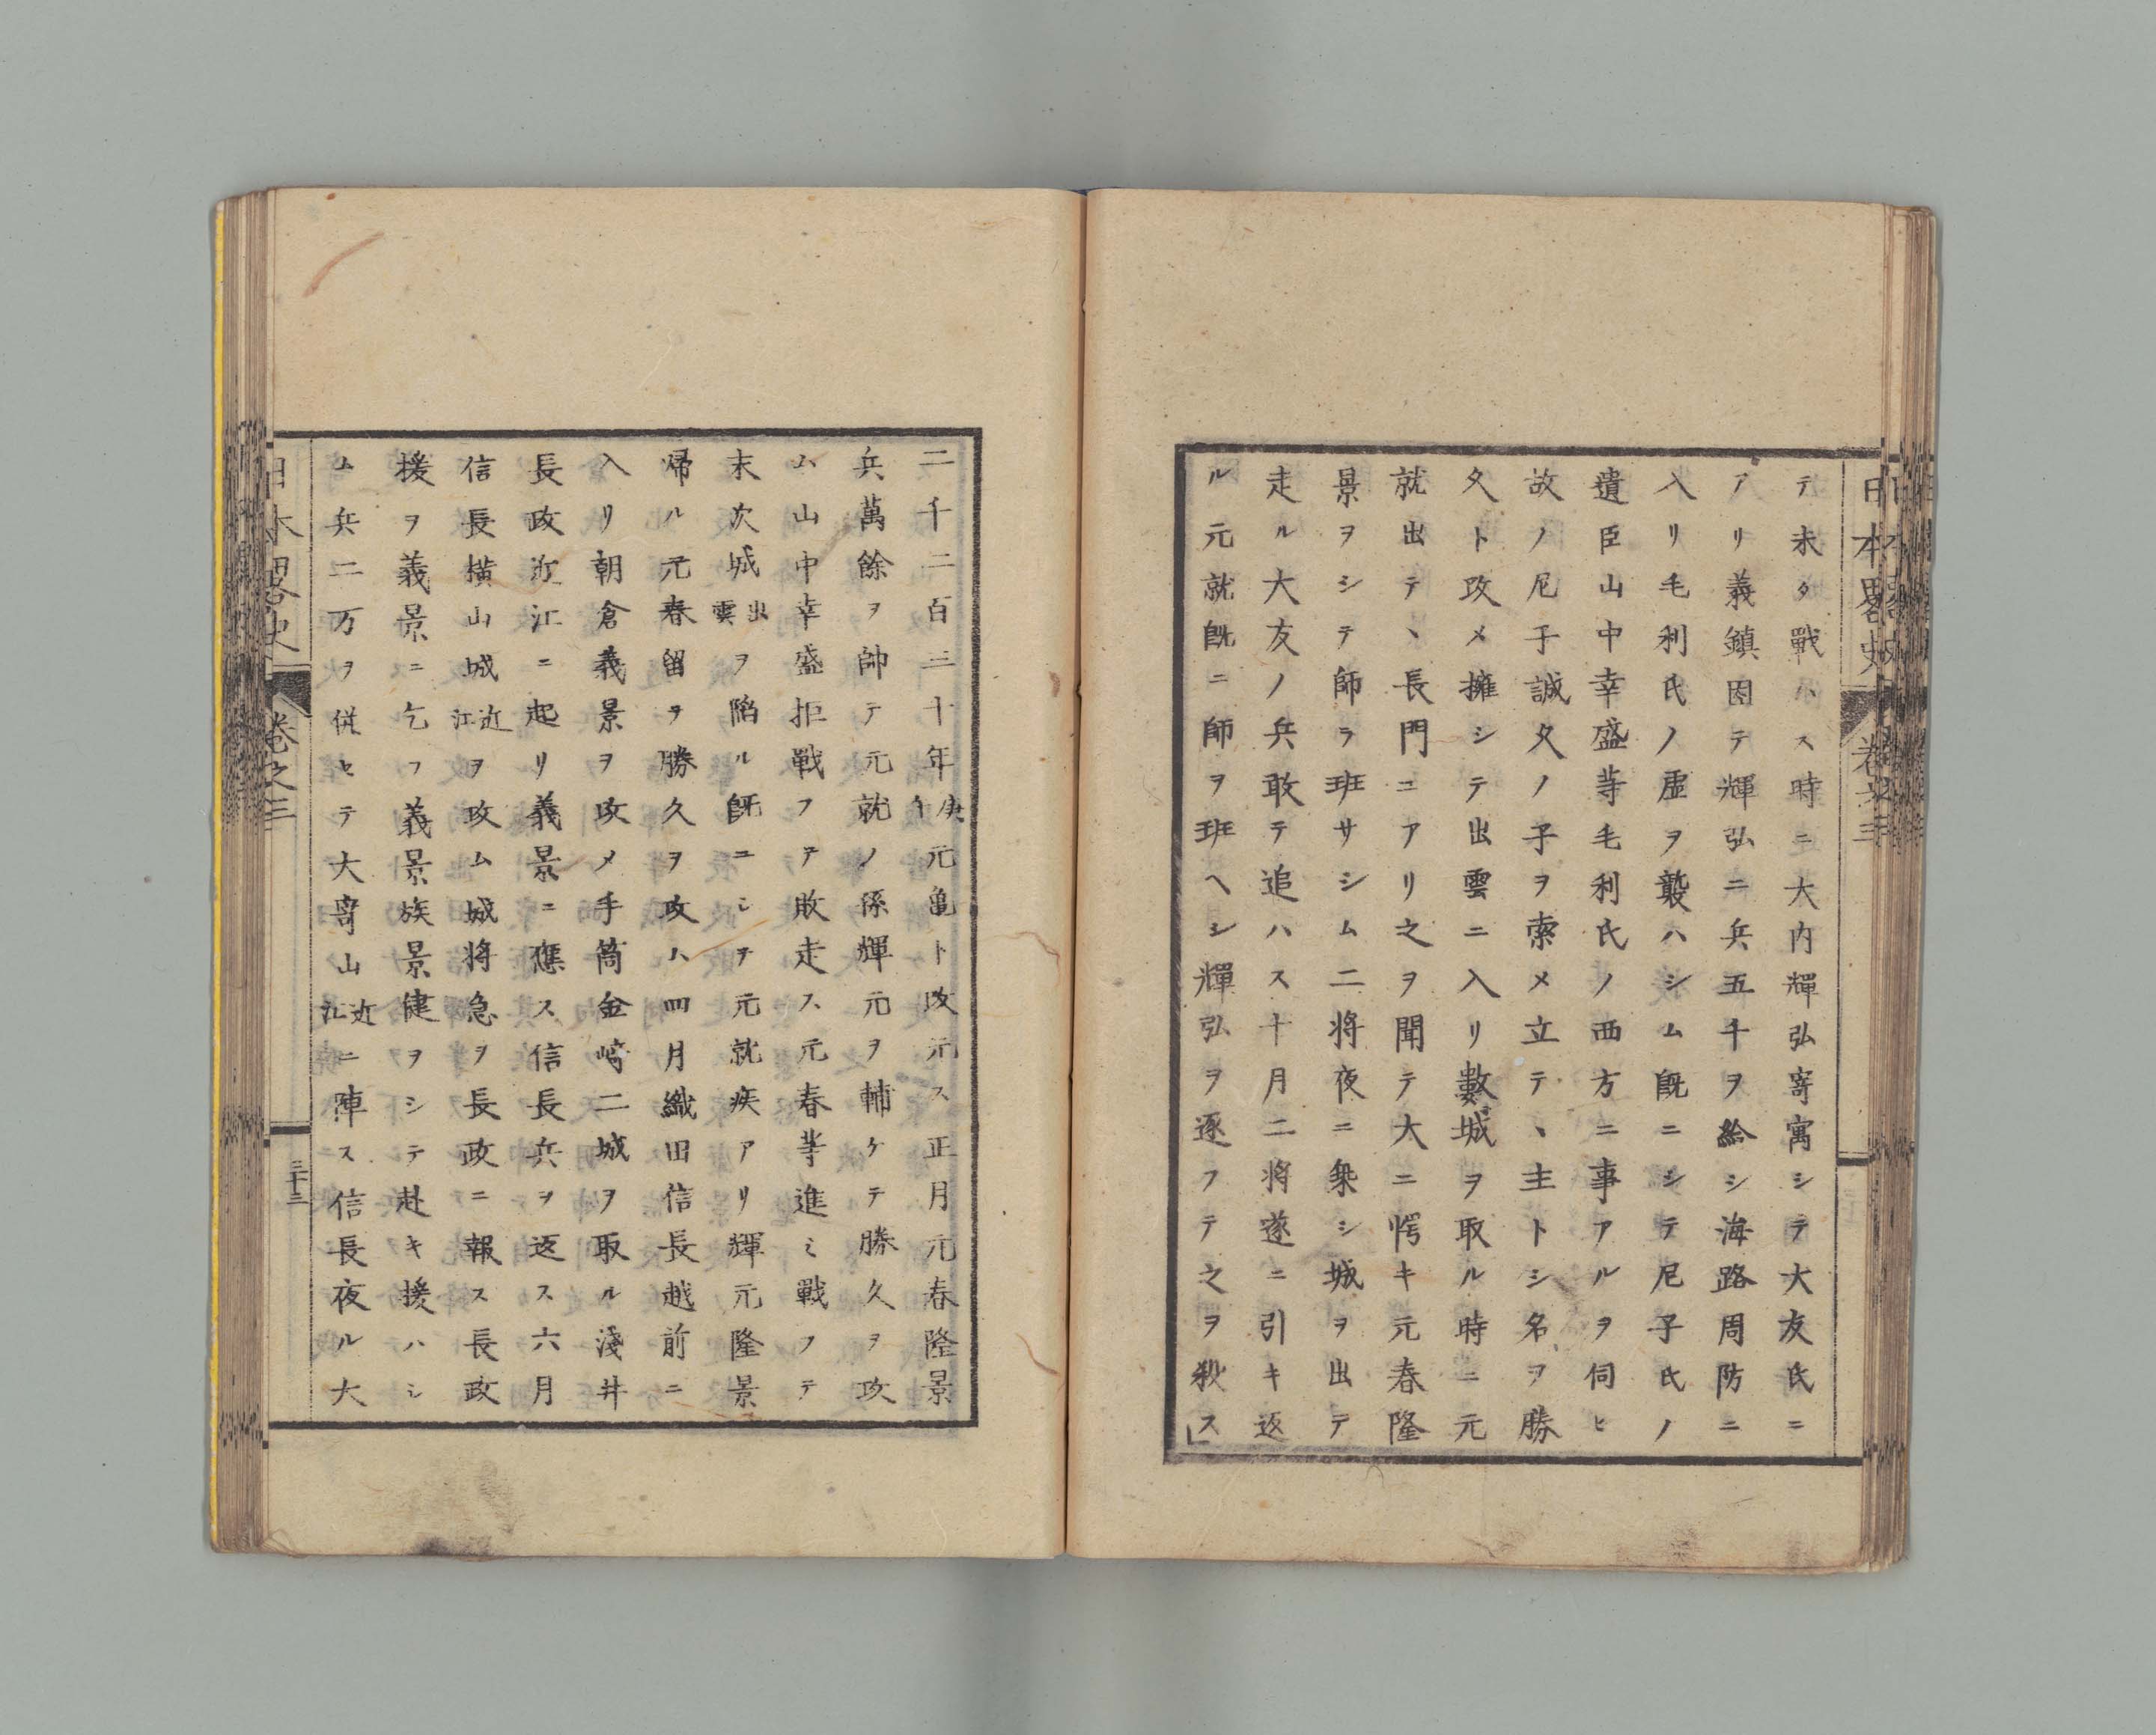 テ未タ戰ハス時ニ大内輝弘寄寓シテ大友氏ニ
アリ義鎮因テ輝弘ニ兵五千ヲ給シ海路周防ニ
入リ毛利氏ノ虚ヲ襲ハシム既ニシテ尼子氏ノ
遺臣山中幸盛等毛利氏ノ西方ニ事アルヲ伺ヒ
故ノ尼子誠久ノ子ヲ索メ立テヽ主トシ名ヲ勝
久ト改メ擁シテ出雲ニ入リ數城ヲ取ル時ニ元
就出テヽ長門ニアリ之ヲ聞テ大ニ愕キ元春隆
景ヲシテ師ヲ班サシム二将夜ニ乗シ城ヲ出テ
走ル大友ノ兵敢テ追ハス十月二将遂ニ引キ返
ル元就既ニ師ヲ班ヘシ輝弘ヲ逐フテ之ヲ殺ス」
日本畧史 卷之三
二千二百三十年庚午元亀ト改元ス正月元春隆景
兵萬餘ヲ帥テ元就ノ孫輝元ヲ輔ケテ勝久ヲ攻
ム山中幸盛拒戰フテ敗走ス元春等進ミ戰フテ
末次城出雲ヲ陥ル既ニシテ元就疾アリ輝元隆景
帰ル元春留ヲ勝久ヲ攻ム四月織田信長越前ニ
入リ朝倉義景ヲ攻メ手筒金﨑二城ヲ取ル淺井
長政近江ニ起リ義景ニ應ス信長兵ヲ返ス六月
信長横山城近江ヲ攻ム城将急ヲ長政ニ報ス長政
援ヲ義景ニ乞フ義景族景健ヲシテ赴キ援ハシ
ム兵二万ヲ従ヒテ大寄山近江ニ陣ス信長夜ル大
日本畧史 卷之三 三十三